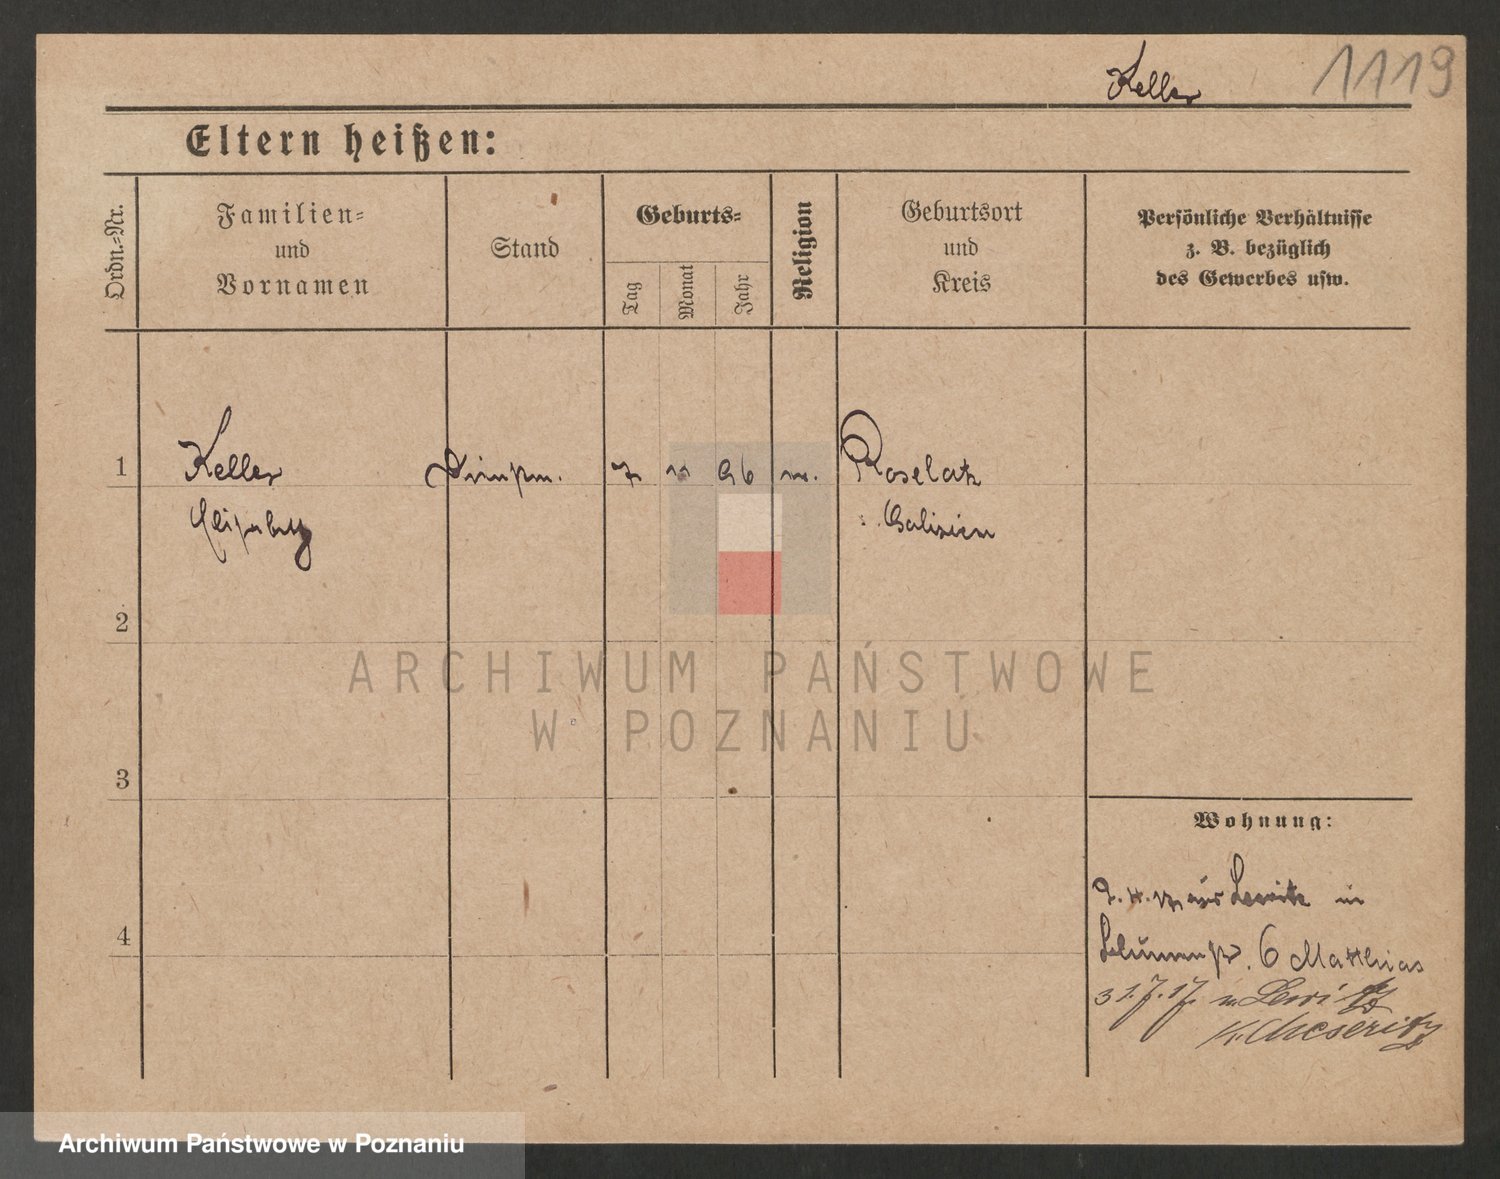 Keller 1119
Eltern heißen:
Ordn.=Nr.
Familien=
und
Vornamen
Stand
Geburts=
Tag
Monat
Jahr
Religion
Geburtsort
und
Kreis
Persönliche Verhältnisse
z. B. bezüglich
des Gewerbes usw.
1 Keller 7 11 96 Roselatz
Elisabeth Galizien
2
3
4
Wohnung:
Lewitz in
Blumenstr. 6 Matthias
31.7.17. n. Lewitz
Kr. Meseritz
ARCHIWUM PAŃSTWOWE
W POZNANIU
Archiwum Państwowe w Poznaniu